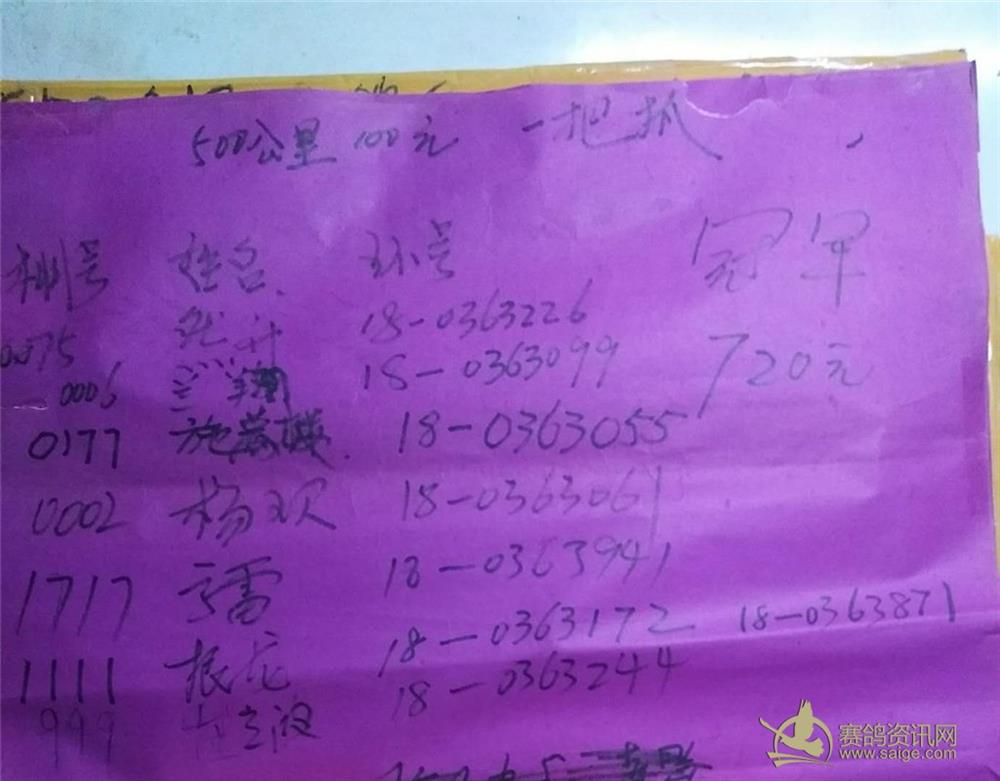 500公里 100元 一把抓
棚号 姓名 环号 冠军
18-0363226
0006 翔 18-0363099 720元
0177 施 18-0363055
0002 杨欢 18-0363061
1717 雷 18-0363941
1111 振龙 18-0363172 18-0363871
999 波 18-0363244
赛鸽资讯网
www.saige.com